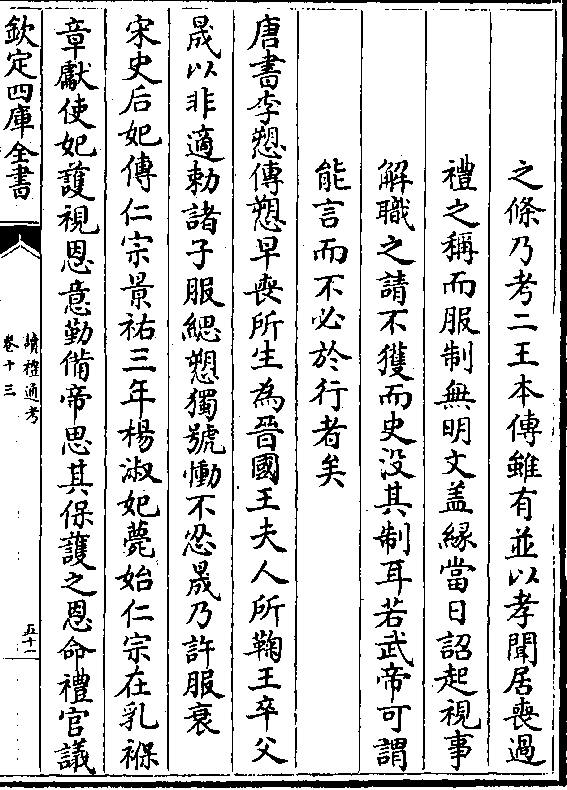 之條乃考二王本傳雖有並以孝聞居喪過
禮之稱而服制無明文盖緣當日詔起視事
解職之請不獲而史没其制耳若武帝可謂
能言而不必於行者矣
唐書李愬傳愬早喪所生為晉國王夫人所鞠王卒父
晟以非適勅諸子服緦愬獨號慟不忍晟乃許服衰
宋史后妃傳仁宗景祐三年楊淑妃薨始仁宗在乳褓
章獻使妃護視恩意勤備帝思其保護之恩命禮官議
欽定四庫全書
讀禮通考
卷十三
五十